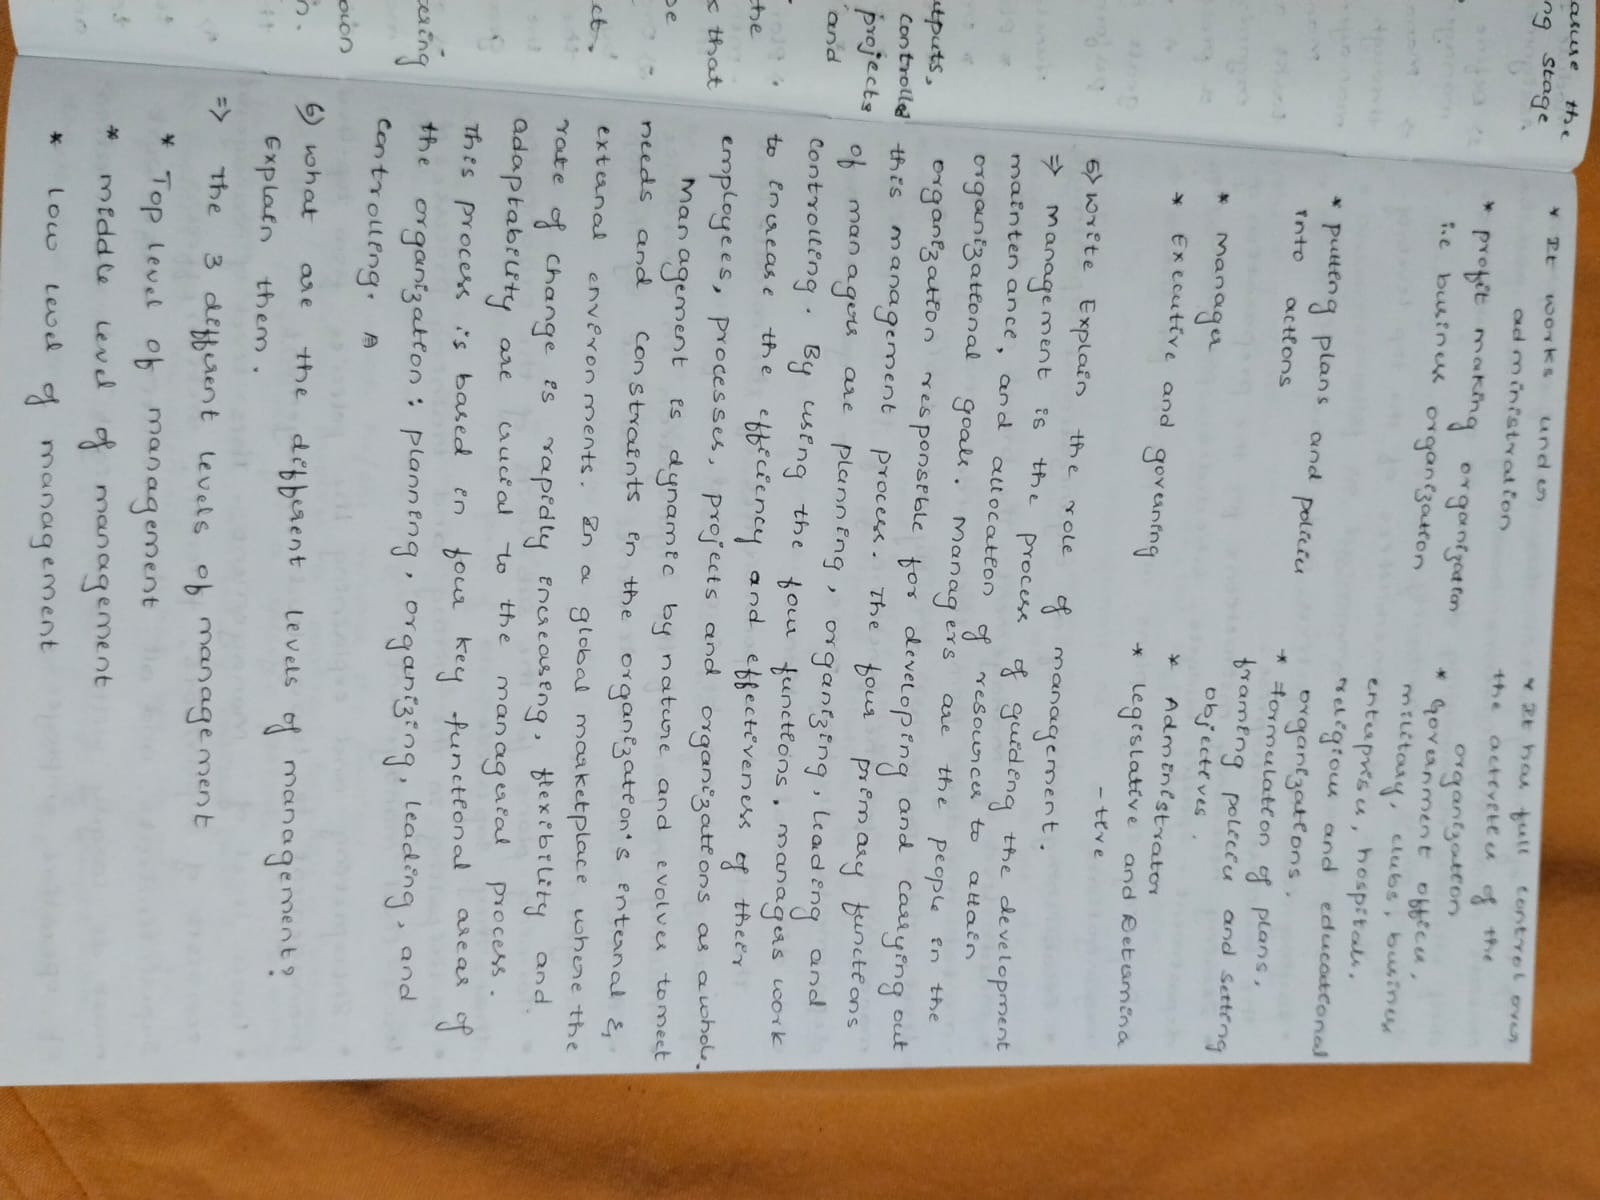 ause the
ng stage
utputs,
controlled
projects
and
s that
the
ct,
n.
* It works under
administration
* profit making organization
i.e business organization
* putting plans and policies
into actions
* manager
* Executive and governing
* It has full control over
the activities of the
organization
* Government offices,
military, clubs, business
enterprises, hospitals,
religious and educational
organizations.
* Formulation of plans,
framing policies and setting
objectives.
* Administrator
* legislative and Determina
-tive
5) write Explain the role of management.
=> management is the process of guiding the development
maintenance, and allocation of resources to attain
organizational goals. Managers are the people in the
organization responsible for developing and carrying out
this management process. The four primary functions
of managers are planning, organizing, leading and
controlling. By using the four functions, managers work
to increase the efficiency and effectiveness of their
employees, processes, projects and organizations as a whole.
Management is dynamic by nature and evolves to meet
needs and constraints in the organization's internal &
external environments. In a global marketplace where the
rate of change is rapidly increasing, flexibility and
adaptability are crucial to the managerial process.
This process is based in four key functional areas of
the organization: planning, organizing, leading, and
controlling.
6) what are the different levels of management?
Explain them.
=> The 3 different levels of management
* Top level of management
* middle level of management
* low level of management